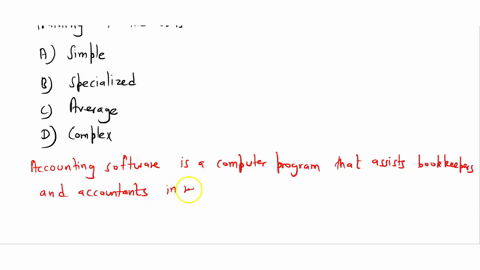 A) Simple
B) Specialized
C) Average
D) Complex
Accounting software is a computer program that assists bookkeepers
and accountants in